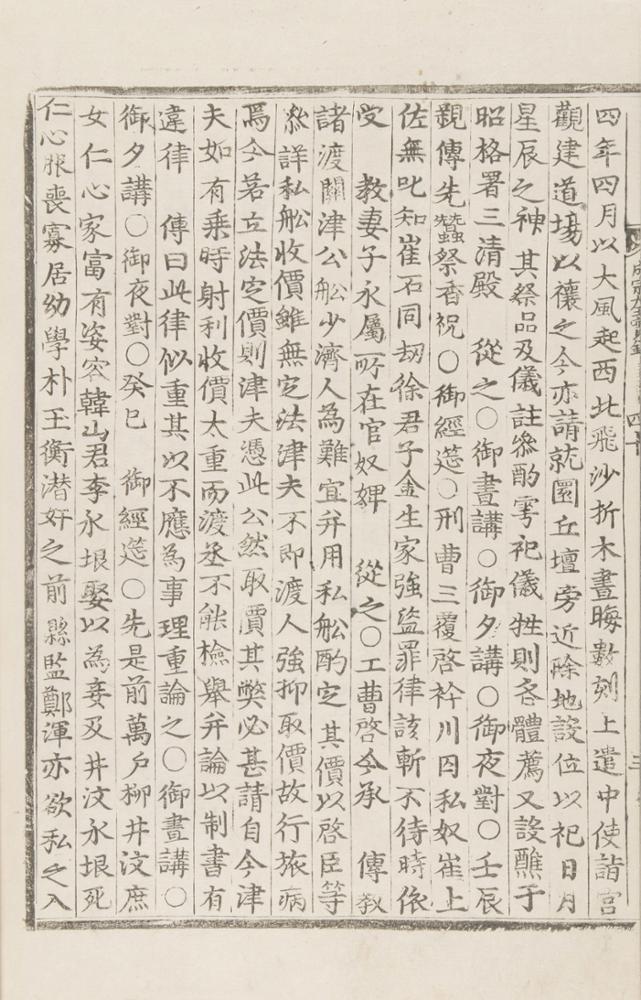 四年四月以大風起西北飛沙折木晝晦數刻上遣中使詣宮
觀建道場以禳之今亦請就圜丘壇旁近除地設位以祀日月
星辰之神其祭品及儀註叅酌雩祀儀牲則各體薦又設醮于
昭格署三淸殿 從之○御晝講○御夕講○御夜對○壬辰
親傳先蠶祭香祝○御經筵○刑曹三覆啓衿川囚私奴崔上
佐無叱知崔石同劫徐君子金生家強盜罪律該斬不待時依
受 敎妻子永屬所在官奴婢 從之○工曹啓今承 傳敎
諸渡關津公船少濟人爲難宜幷用私船酌定其價以啓臣等
叅詳私船收價雖無定法津夫不即渡人強抑取價故行旅病
焉今若立法定價則津夫憑此公然取價其弊必甚請自今津
夫如有乘時射利收價太重而渡丞不能檢擧幷論以制書有
違律 傳曰此律似重其以不應爲事理重論之○御晝講○
御夕講○御夜對○癸巳 御經筵○先是前萬戶柳井汶庶
女仁心家富有姿容韓山君李永垠娶以爲妾及井汶永垠死
仁心服喪寡居幼學朴玉衡潛奸之前縣監鄭渾亦欲私之入